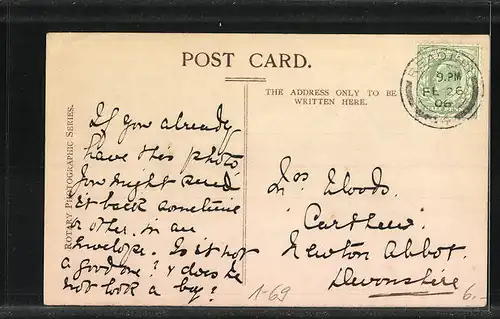 POST CARD.
THE ADDRESS ONLY TO BE
WRITTEN HERE.
ROTARY PHOTOGRAPHIC SERIES.
READING
9.PM
FE 26
06
If you already
have this photo
you might send
it back sometime
or other. in an
Envelope. Is it not
a good one? & does he
not look a boy?
Woods.
Newton Abbot.
Devonshire
1-69
6.-